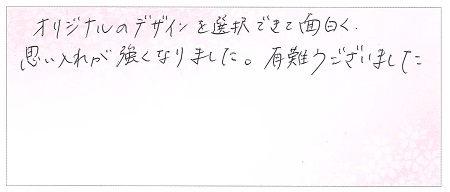 オリジナルのデザインを選択できて面白く、
思い入れが強くなりました。有難うございました